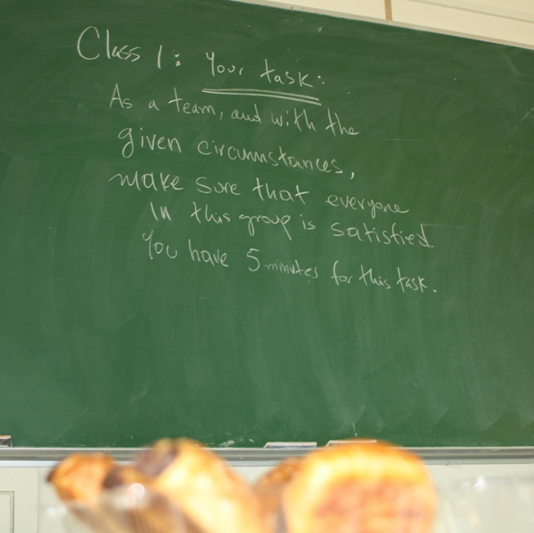 Class 1: Your task:
As a team, and with the
given circumstances,
make sure that everyone
in this group is satisfied
You have 5 minutes for this task.